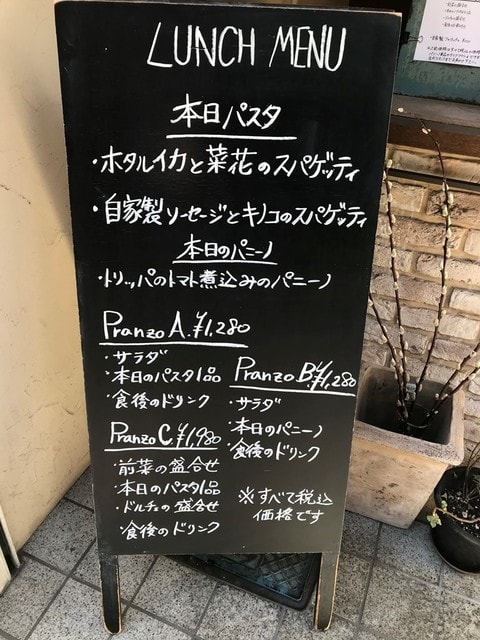 LUNCH MENU
本日パスタ
・ホタルイカと菜花のスパゲッティ
・自家製ソーセージとキノコのスパゲッティ
本日のパニーノ
・トリッパのトマト煮込みのパニーノ
Pranzo A. ¥1,280
・サラダ
・本日のパスタ1品
・食後のドリンク
Pranzo B. ¥1,280
・サラダ
・本日のパニーノ
・食後のドリンク
Pranzo C. ¥1,980
・前菜の盛合せ
・本日のパスタ1品
・ドルチェの盛合せ
・食後のドリンク
※すべて税込
価格です